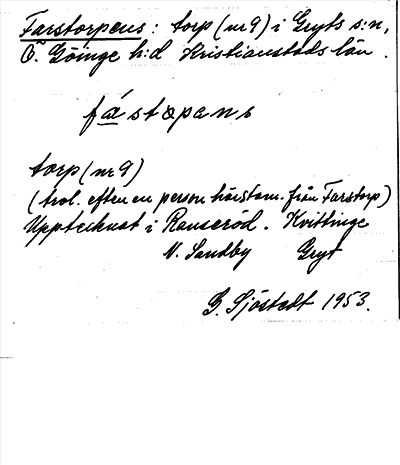 Farstorpens: torp (nr 9) i Gryts s:n,
Ö. Göinge h:d Kristianstads län.
fástɵpans
torp (nr 9)
(trol. efter en person härstam. från Farstorp)
Upptecknat i Ranseröd. Kvittinge
N. Sandby Gryt
G. Sjöstedt 1953.